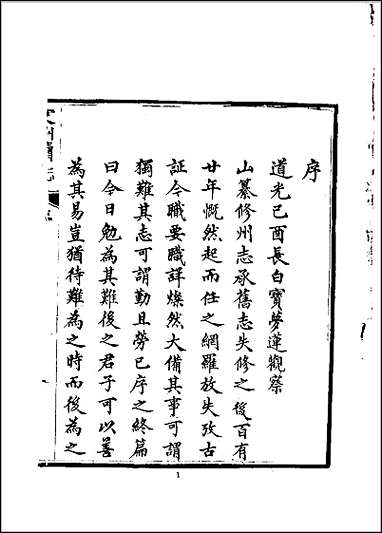 序
道光己酉長白寶夢蓮觀察
山纂修州志承舊志失修之後百有
廿年慨然起而任之網羅放失攷古
証今職要職詳燦然大備其事可謂
獨難其志可謂勤且勞已序之終篇
曰今日勉為其難後之君子可以善
為其易豈猶待難為之時而後為之
1